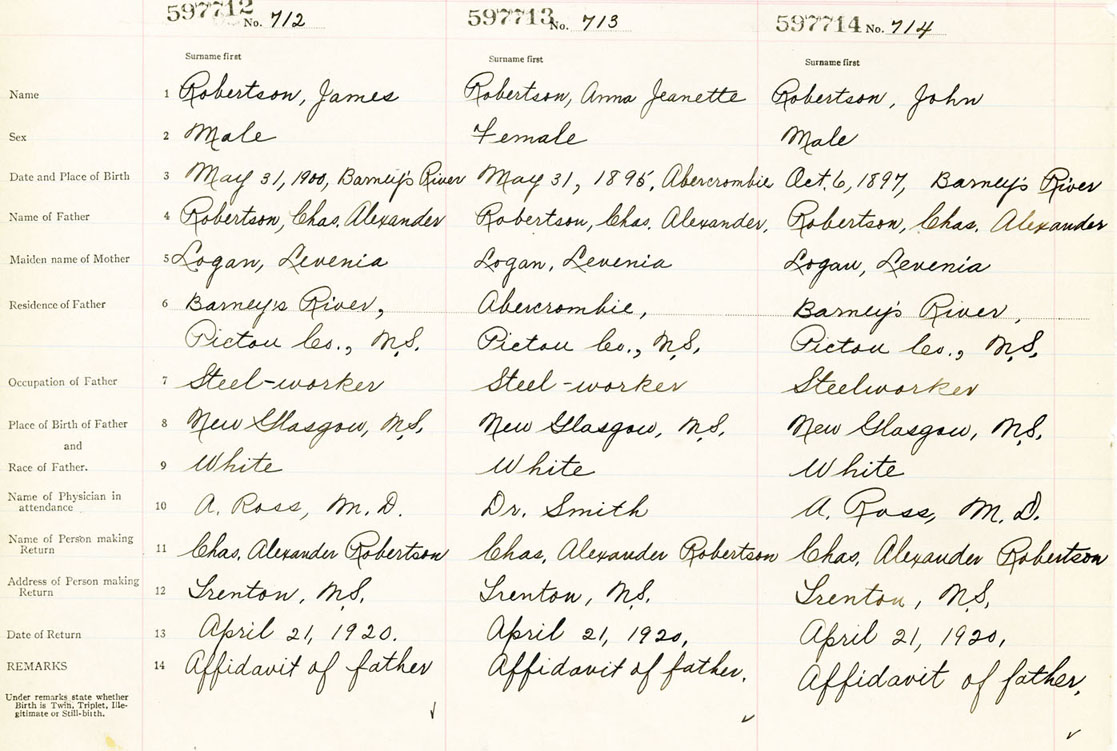 597712 No. 712 597713 No. 713 597714 No. 714
Surname first Surname first Surname first
Name 1 Robertson, James Robertson, Anna Jeanette Robertson, John
Sex 2 Male Female Male
Date and Place of Birth 3 May 31, 1900, Barney's River May 31, 1895, Abercrombie Oct. 6, 1897, Barney's River
Name of Father 4 Robertson, Chas. Alexander Robertson, Chas. Alexander, Robertson, Chas. Alexander
Maiden name of Mother 5 Logan, Levenia Logan, Levenia Logan, Levenia
Residence of Father 6 Barney's River, Abercrombie, Barney's River,
Pictou Co., N.S. Pictou Co., N.S. Pictou Co., N.S.
Occupation of Father 7 Steel-worker Steel-worker Steelworker
Place of Birth of Father 8 New Glasgow, N.S. New Glasgow, N.S. New Glasgow, N.S.
and
Race of Father. 9 White White White
Name of Physician in
attendance 10 A. Ross, M.D. Dr. Smith A. Ross, M.D.
Name of Person making
Return 11 Chas. Alexander Robertson Chas. Alexander Robertson Chas. Alexander Robertson
Address of Person making
Return 12 Trenton, N.S. Trenton, N.S. Trenton, N.S.
Date of Return 13 April 21, 1920. April 21, 1920, April 21, 1920,
REMARKS 14 Affidavit of father Affidavit of father. Affidavit of father.
Under remarks state whether
Birth is Twin, Triplet, Ille-
gitimate or Still-birth.